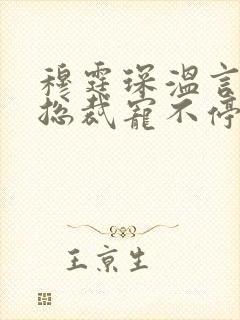 穆霆琛温言
总裁宠不停
王京生